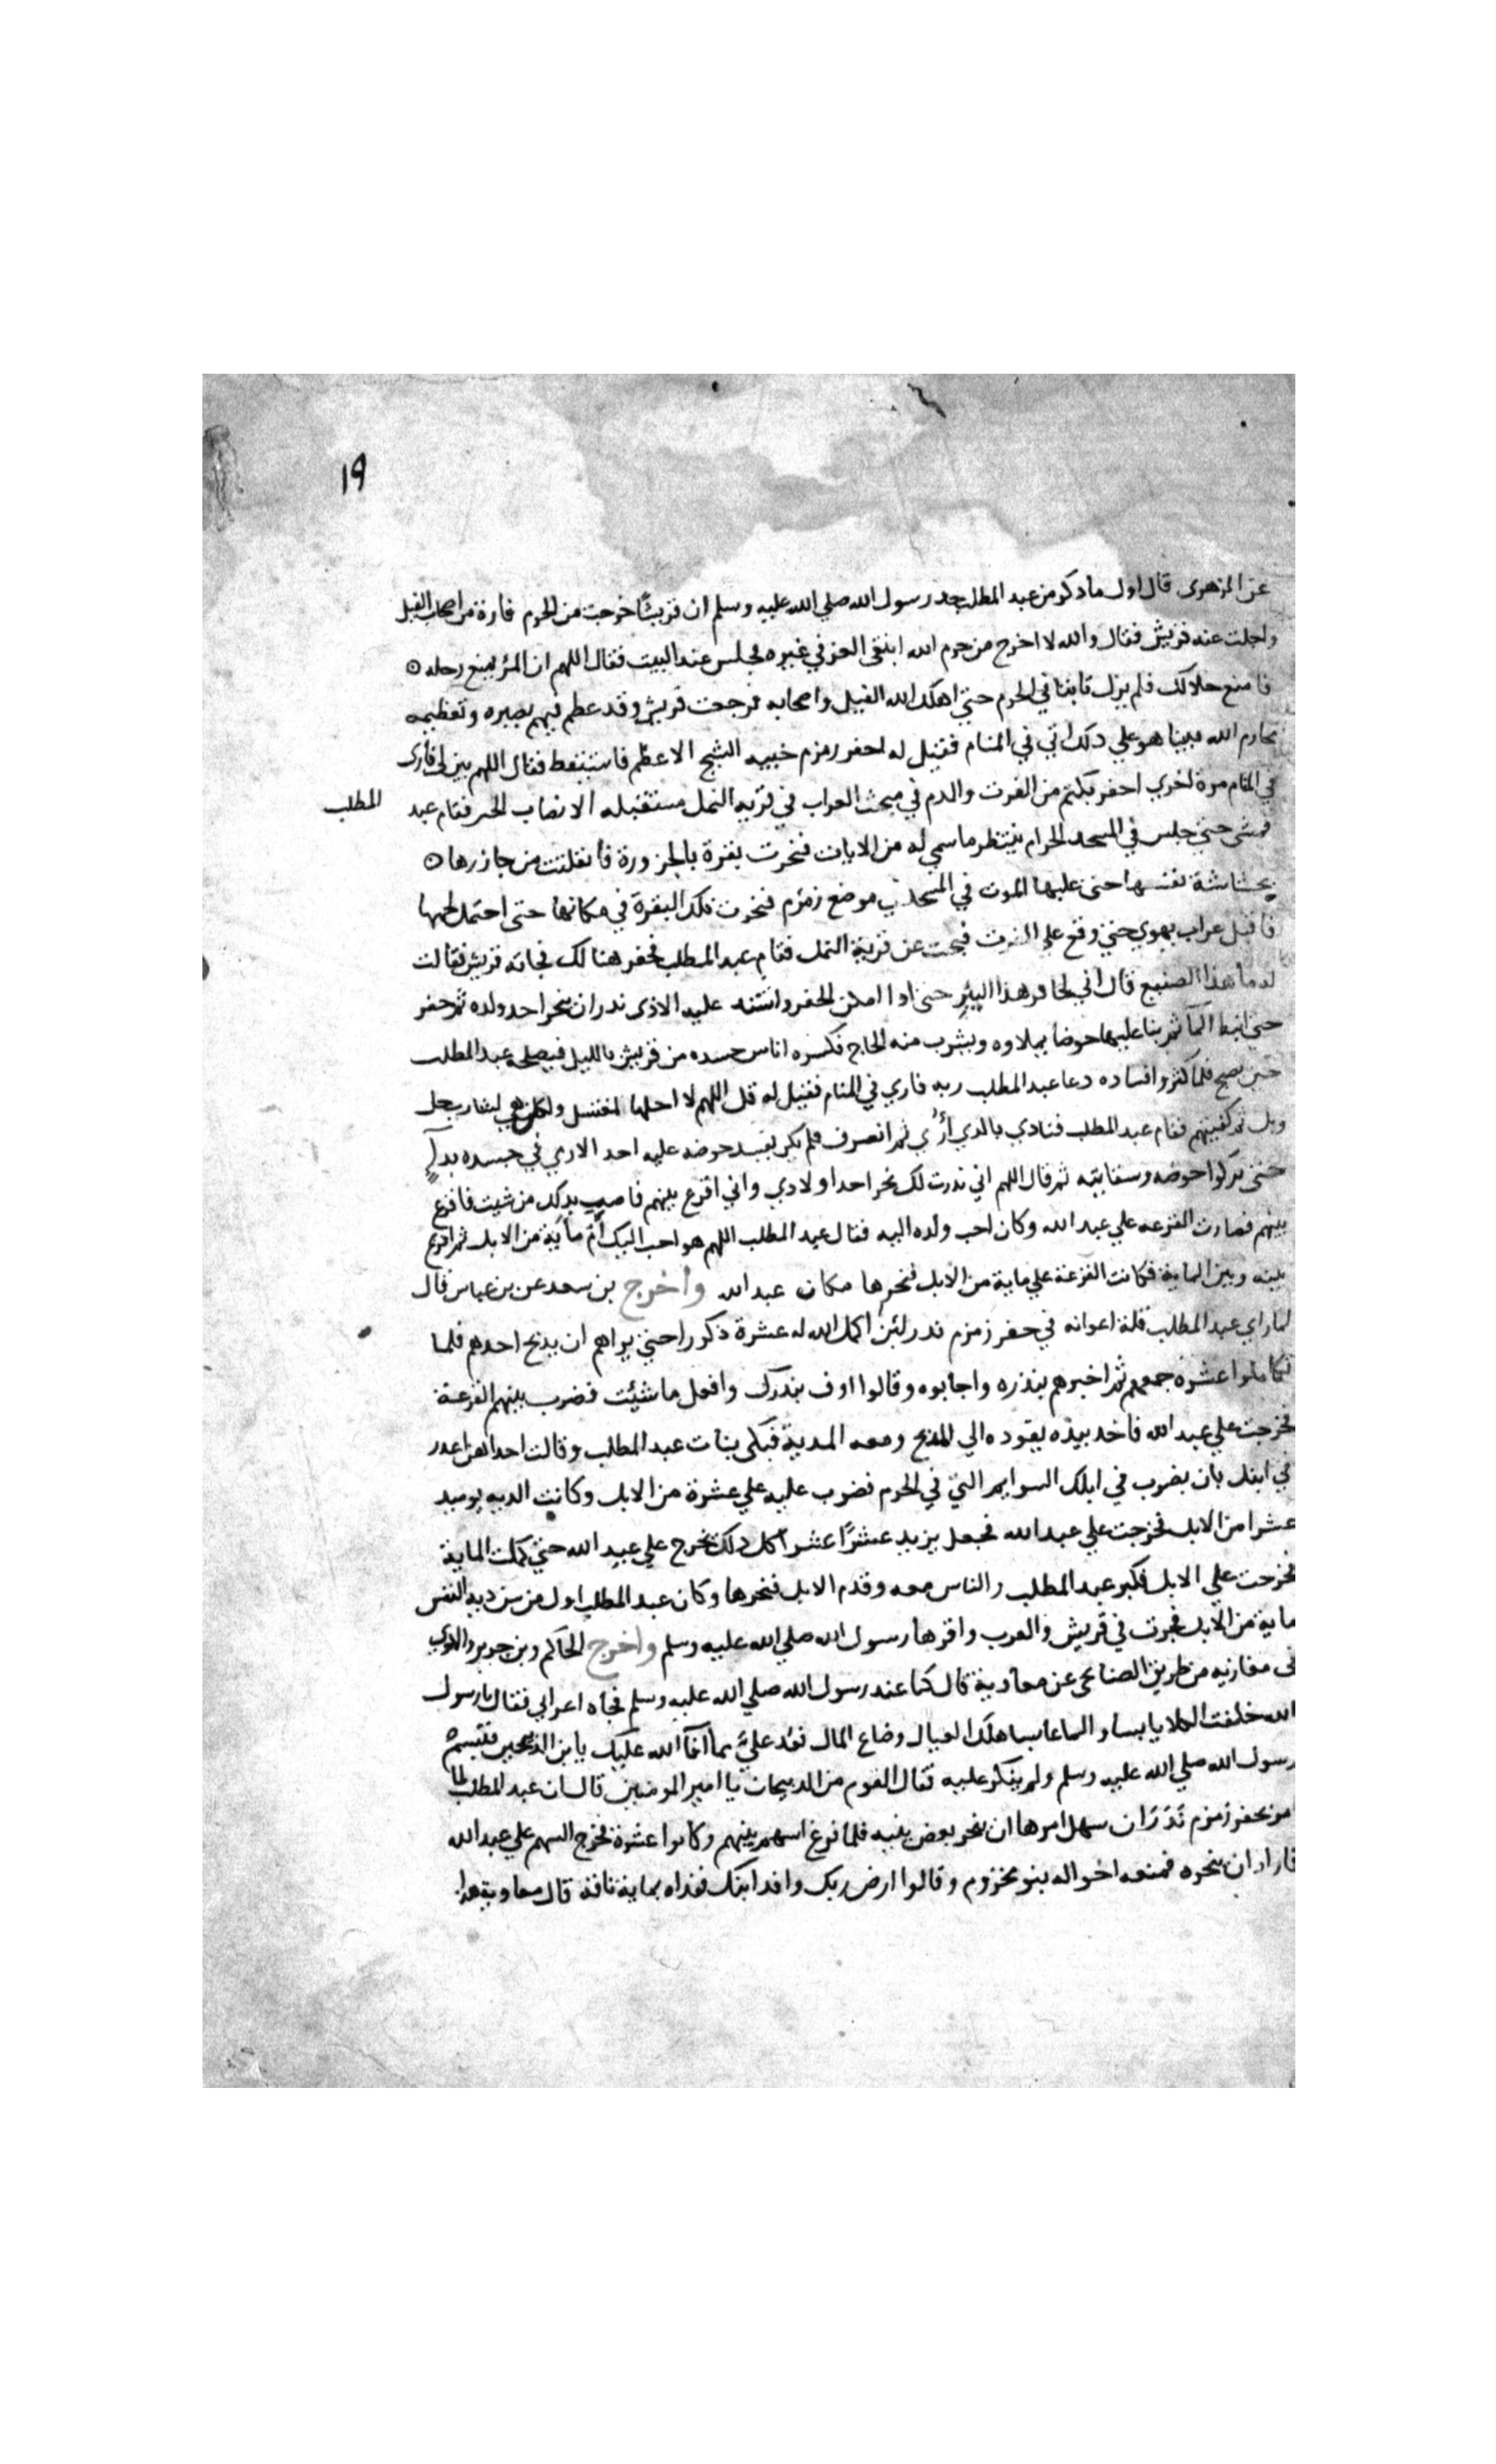 ١٩
عن الزهرى قال اول ما ذكر من عبد المطلب جد رسول الله صلي الله عليه وسلم ان قريشًا خرجت من الحرم فارة من اصحاب الفيل
واجلت عنه قريش فقال والله لا اخرج من حرم الله ابتغى العز في غيره فجلس عند البيت فقال اللهم ان المرء يمنع رحله ه
فامنع حلالك فلم يزل ثابتا في الحرم حتي اهلك الله الفيل واصحابه فرجعت قريش وقد عظم فيهم بصبره وتعظيمه
محارم الله فبينا هو علي ذلك اتي في المنام فقيل له احفر زمزم خبيه الشيخ الاعظم فاستيقظ فقال اللهم بين لى فارى
في المنام مرة اخري احفر بكتم من الفرث والدم في مبحث الغراب في قريه النمل مستقبله الانصاب الحمر فقام عبد
المطلب
فمشى حتي جلس في المسجد الحرام ينتظر ما سمي له من الايات فنحرت بقرة بالجزورة فانفلتت من جازرها ه
بحشاشة نفسها حتى عليها الموت في المسجد في موضع زمزم فنحرت تلك البقرة في مكانها حتى احتمل لحمها
فاقبل غراب يهوي حتي وقع علي الفرث فبحث عن قرية النمل فقام عبد المطلب فحفر هنالك فجاته قريش فقالت
له ما هذا الصنيع قال اني لحافر هذا البئر حتى اذا امكن الحفر واشتد عليه الاذى ندر ان ينحر احد ولده ثم حفر
حتي انبط الما ثم بنا عليها حوضا يملاوه ويشرب منه الحاج فكسره اناس حسده من قريش بالليل فيصلحه عبد المطلب
حين يصبح فلما كثر وافساده دعا عبد المطلب ربه فاري في المنام فقيل له قل اللهم لا احلها لمغتسل ولكن هي لشارب حل
وبل ثم كفيتهم فقام عبد المطلب فنادي بالذي أرُي ثم انصرف فلم يكن يفسد حوضه عليه احد الا رمي في جسده بدآ
حتى تركوا حوضه وسقايته ثم قال اللهم اني ندرت لك نحر احد اولادي واني اقرع بينهم فاصب بدلك من شيت فاقرع
بينهم فصارت القرعه علي عبد الله وكان احب ولده اليه فقال عبد المطلب اللهم هو احب اليك أم مأية من الابل ثم اقرع
بينه وبين الماية فكانت القرعة علي ماية من الابل فنحرها مكان عبد الله واخرج بن سعد عن بن عباس قال
لما راي عبد المطلب قلة اعوانه في حفر زمزم ندر لئن اكمل الله له عشرة ذكورا حتي يراهم ان يدبح احدهم فلما
تكاملوا عشرة جمعهم ثم اخبرهم بنذره واجابوه وقالوا اوف بندرك وافعل ما شئت فضرب بينهم القرعة
فخرجت علي عبد الله فاخد بيده يقوده الي المدبح ومعه المدية فبكى بنات عبد المطلب وقالت احداهن اعدر
في ابنك بان يضرب في ابلك السوايم التي في الحرم فضرب عليه علي عشرة من الابل وكانت الديه يوميد
عشرا من الابل فخرجت علي عبد الله فجعل يزيد عشرًا عشرا كل دلك يخرج علي عبد الله حتي كملت الماية
فخرجت علي الابل فكبر عبد المطلب والناس معه وقدم الابل فنحرها وكان عبد المطلب اول من سن دية النفس
ماية من الابل فجرت في قريش والعرب واقرها رسول الله صلي الله عليه وسلم واخرج الحاكم وبن جرير والاموي
في مغازيه من طريق الصنابحى عن معاوية قال كنا عند رسول الله صلي الله عليه وسلم فجاه اعرابي فقال يا رسول
الله خلفت الكلا يابسا والما عابسا هلك العيال وضاع المال فعُد عليَّ مما افآ الله عليك يا بن الذبيحين فتبسم
رسول الله صلي الله عليه وسلم ولم ينكر عليه فقال القوم من الدبيحان يا امير المومنين قال ان عبد المطلب لما
امر بحفر زمزم نَدَرَ ان سهل امرها ان ينحر بعض بنيه فلما فرغ اسهم بينهم وكانوا عشرة فخرج السهم علي عبد الله
فاراد ان ينحره فمنعه اخواله بنو مخزوم وقالوا ارض ربك وافد ابنك ففداه بماية ناقة قال معاوية هدا